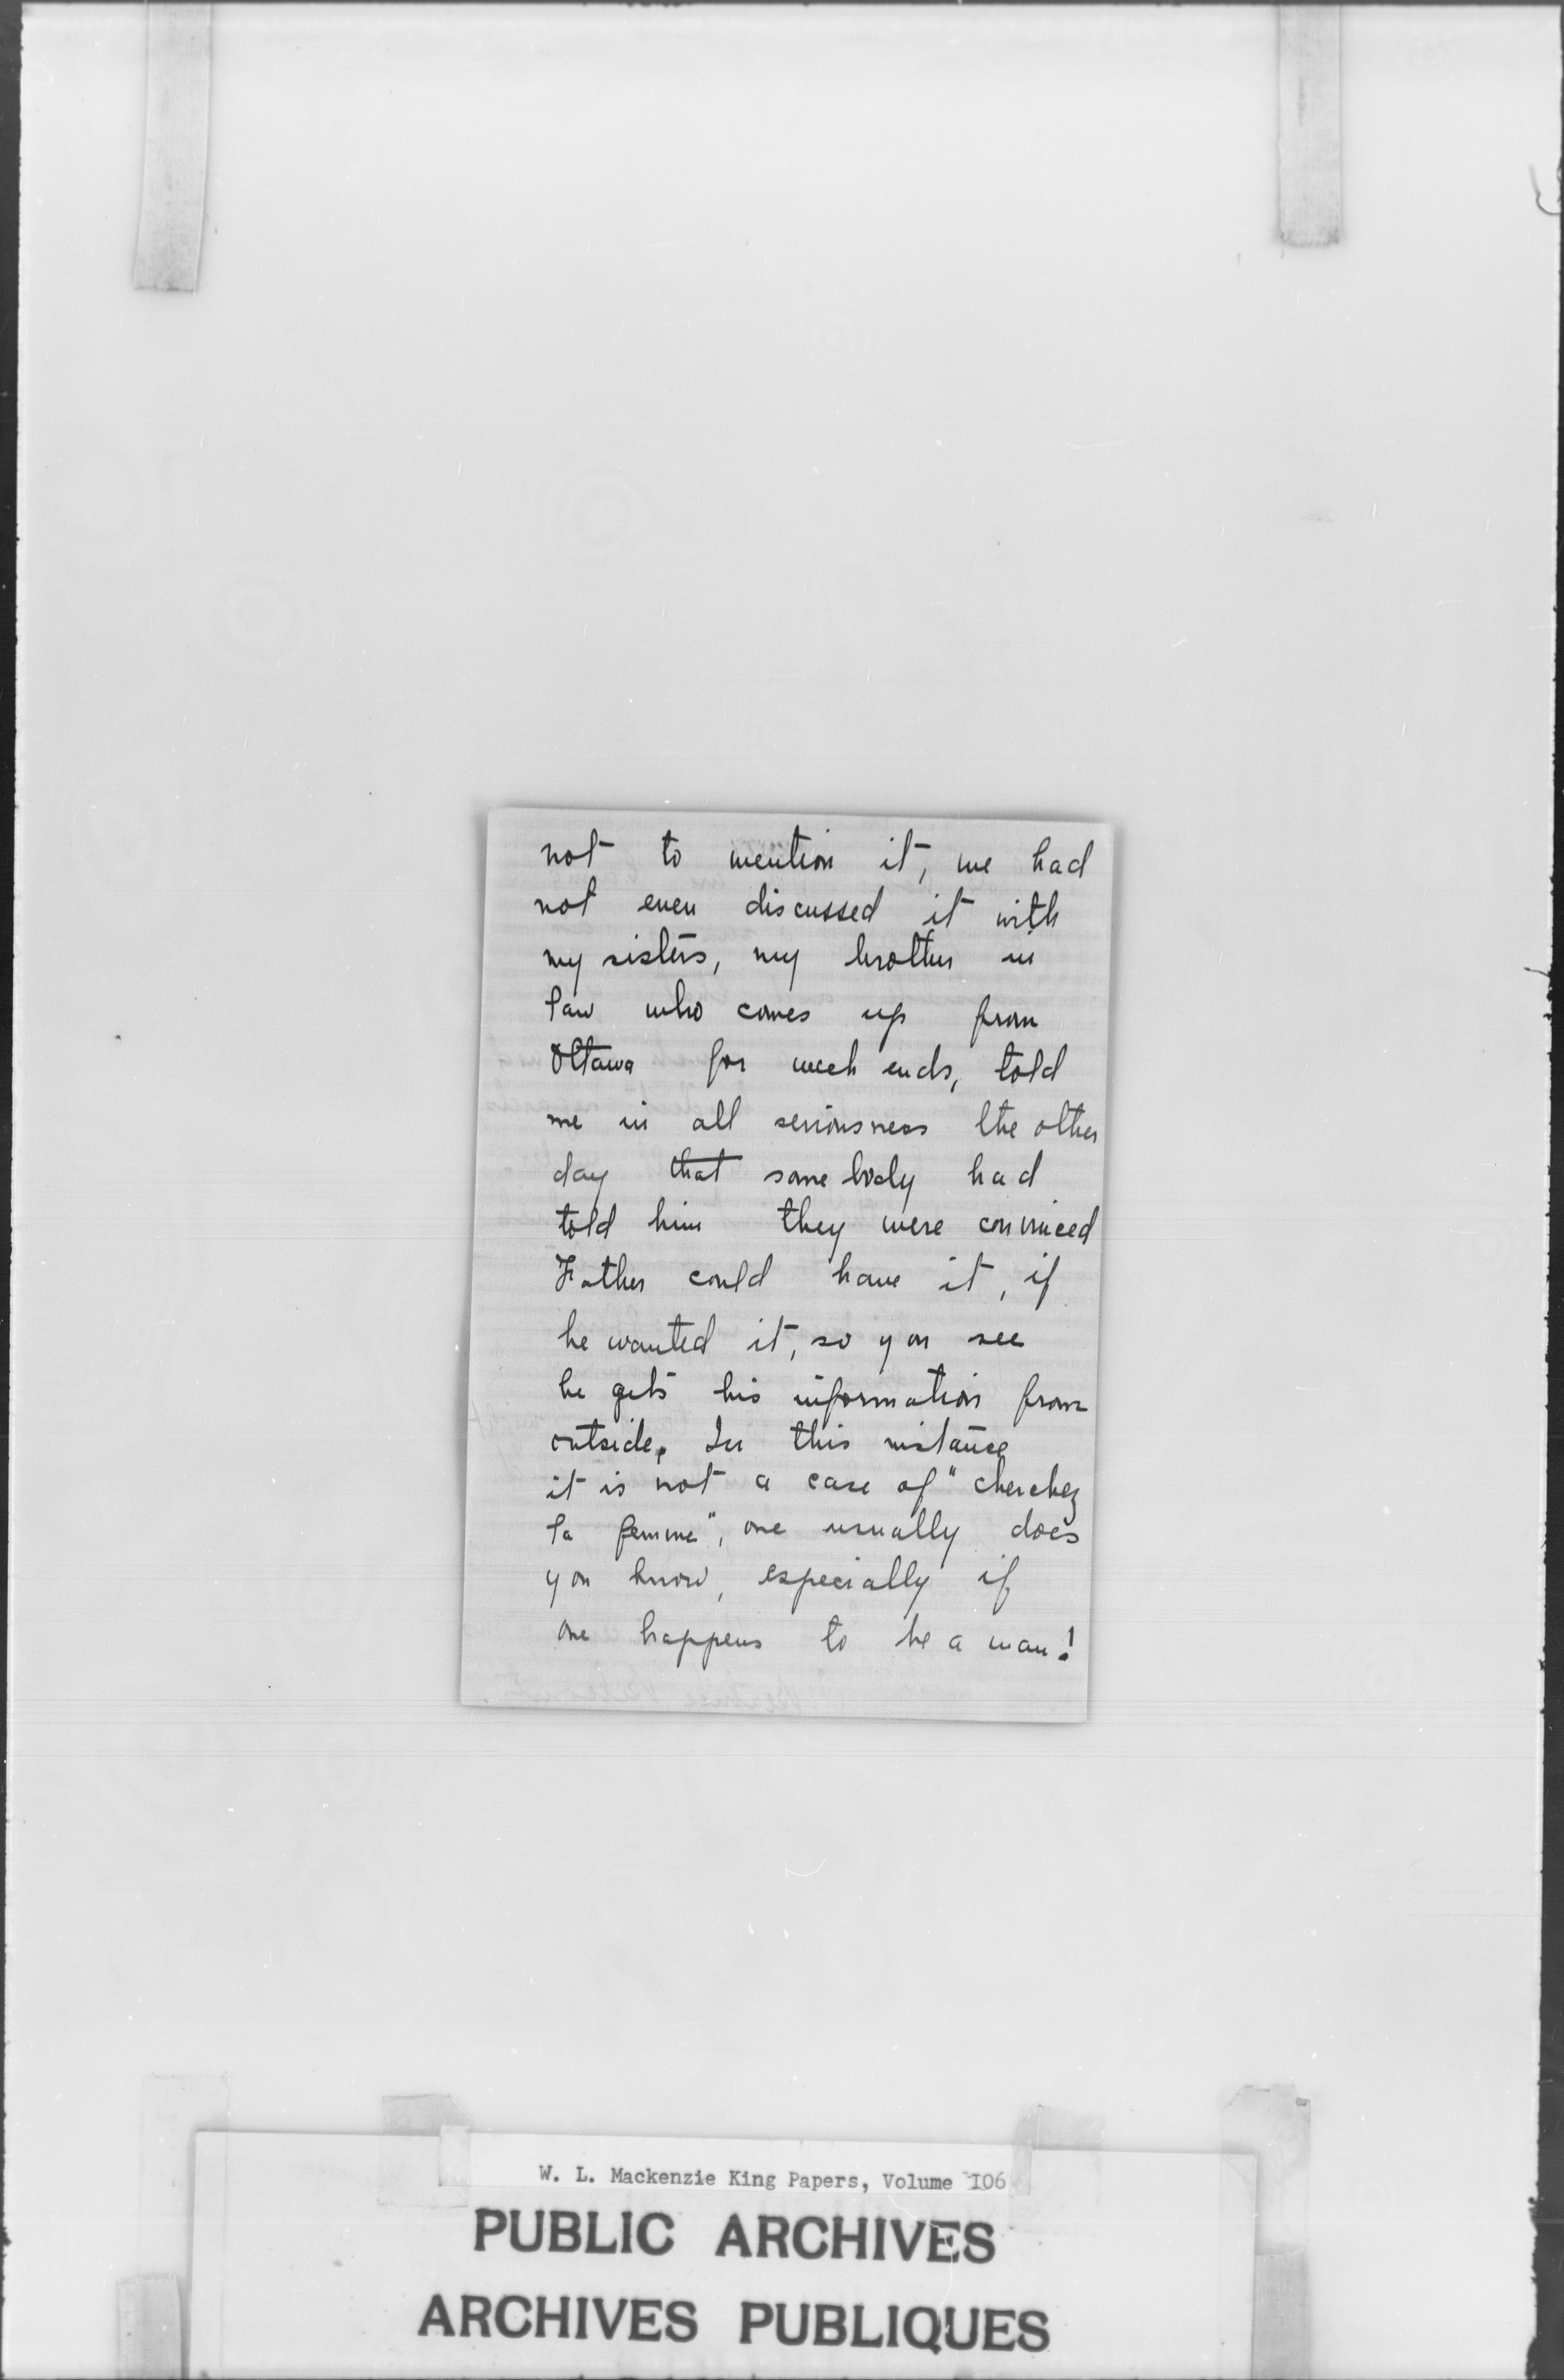 not to mention it, we had
not even discussed it with
my sisters, my brother in
law who comes up from
Ottawa for week ends, told
me in all seriousness the other
day that some body had
told him they were convinced
Father could have it, if
he wanted it, so you see
he gets his information from
outside. In this instance
it is not a case of "cherchez
la femme", one usually does
you know, especially if
one happens to be a man!
W. L. Mackenzie King Papers, Volume 106
PUBLIC ARCHIVES
ARCHIVES PUBLIQUES